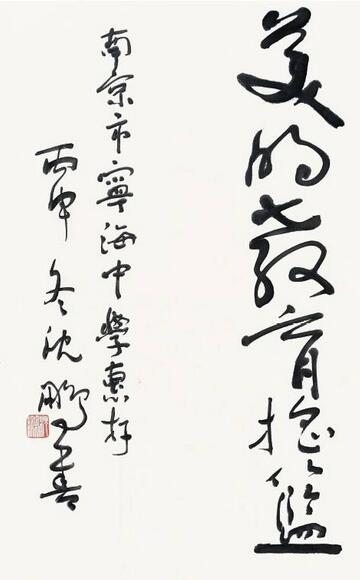 美的教育搖籃
南京市寧海中學惠存
丙申冬沈鵬書